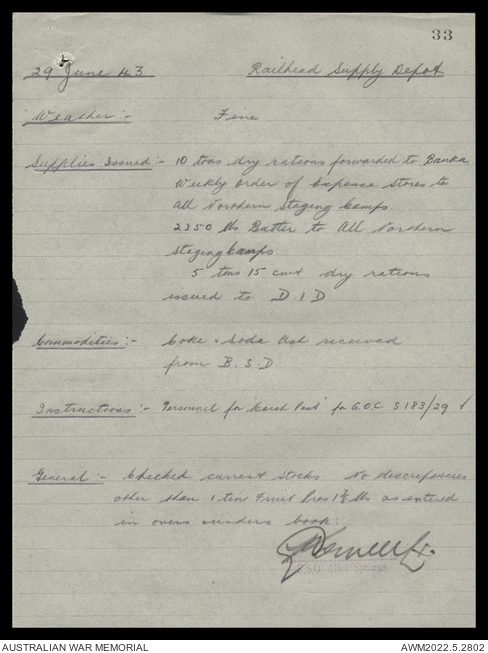 33
29 June 43 Railhead Supply Depot
Weather:- Fine
Supplies Issued:- 10 tons dry rations forwarded to Banka
Weekly Order of Expense Stores to
All Northern Staging Camps.
2350 lbs Butter to All Northern
Staging Camps
5 tons 15 cwt dry rations
issued to D.I.D
Commodities:- Coke & Soda Ash received
from B.S.D.
Instructions:- Personnel for March Past for G.O.C S183/29
General:- Checked current stocks No discrepencies
other than 1 tin Fruit Pres 1⅞ lbs as entered
in overs & unders book.
Alice Springs
AUSTRALIAN WAR MEMORIAL AWM2022.5.2802